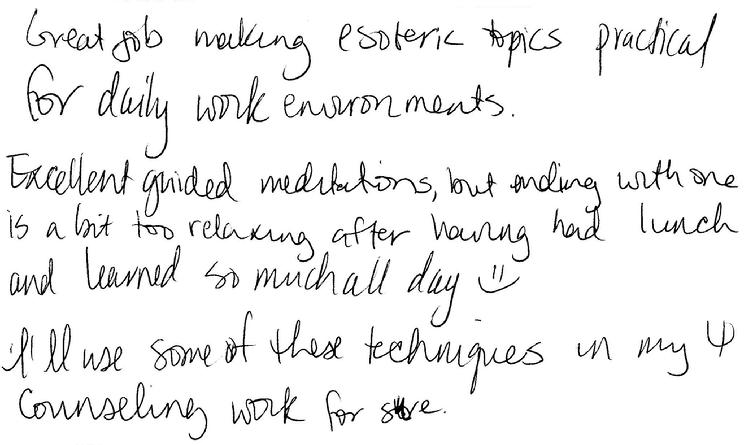 Great job making esoteric topics practical
for daily work environments.
Excellent guided meditations, but ending with one
is a bit too relaxing after having had lunch
and learned so much all day :)
I'll use some of these techniques in my Ψ
Counseling work for sure.